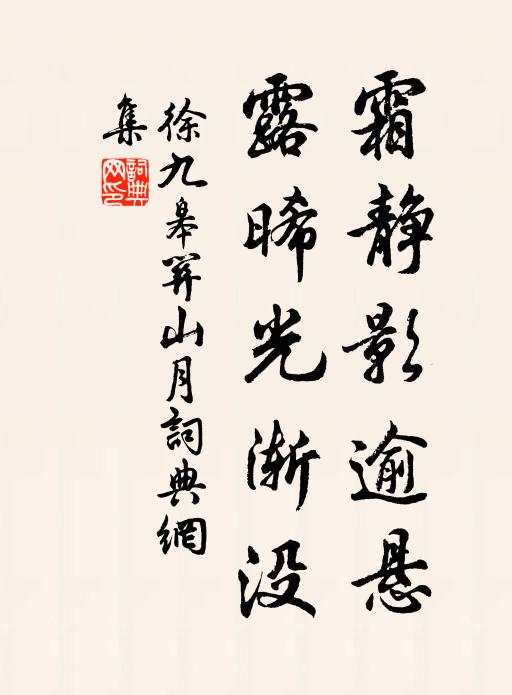 霜静影逾悬
露晞光渐没
徐九皋关山月詞典網
集
詞典網印